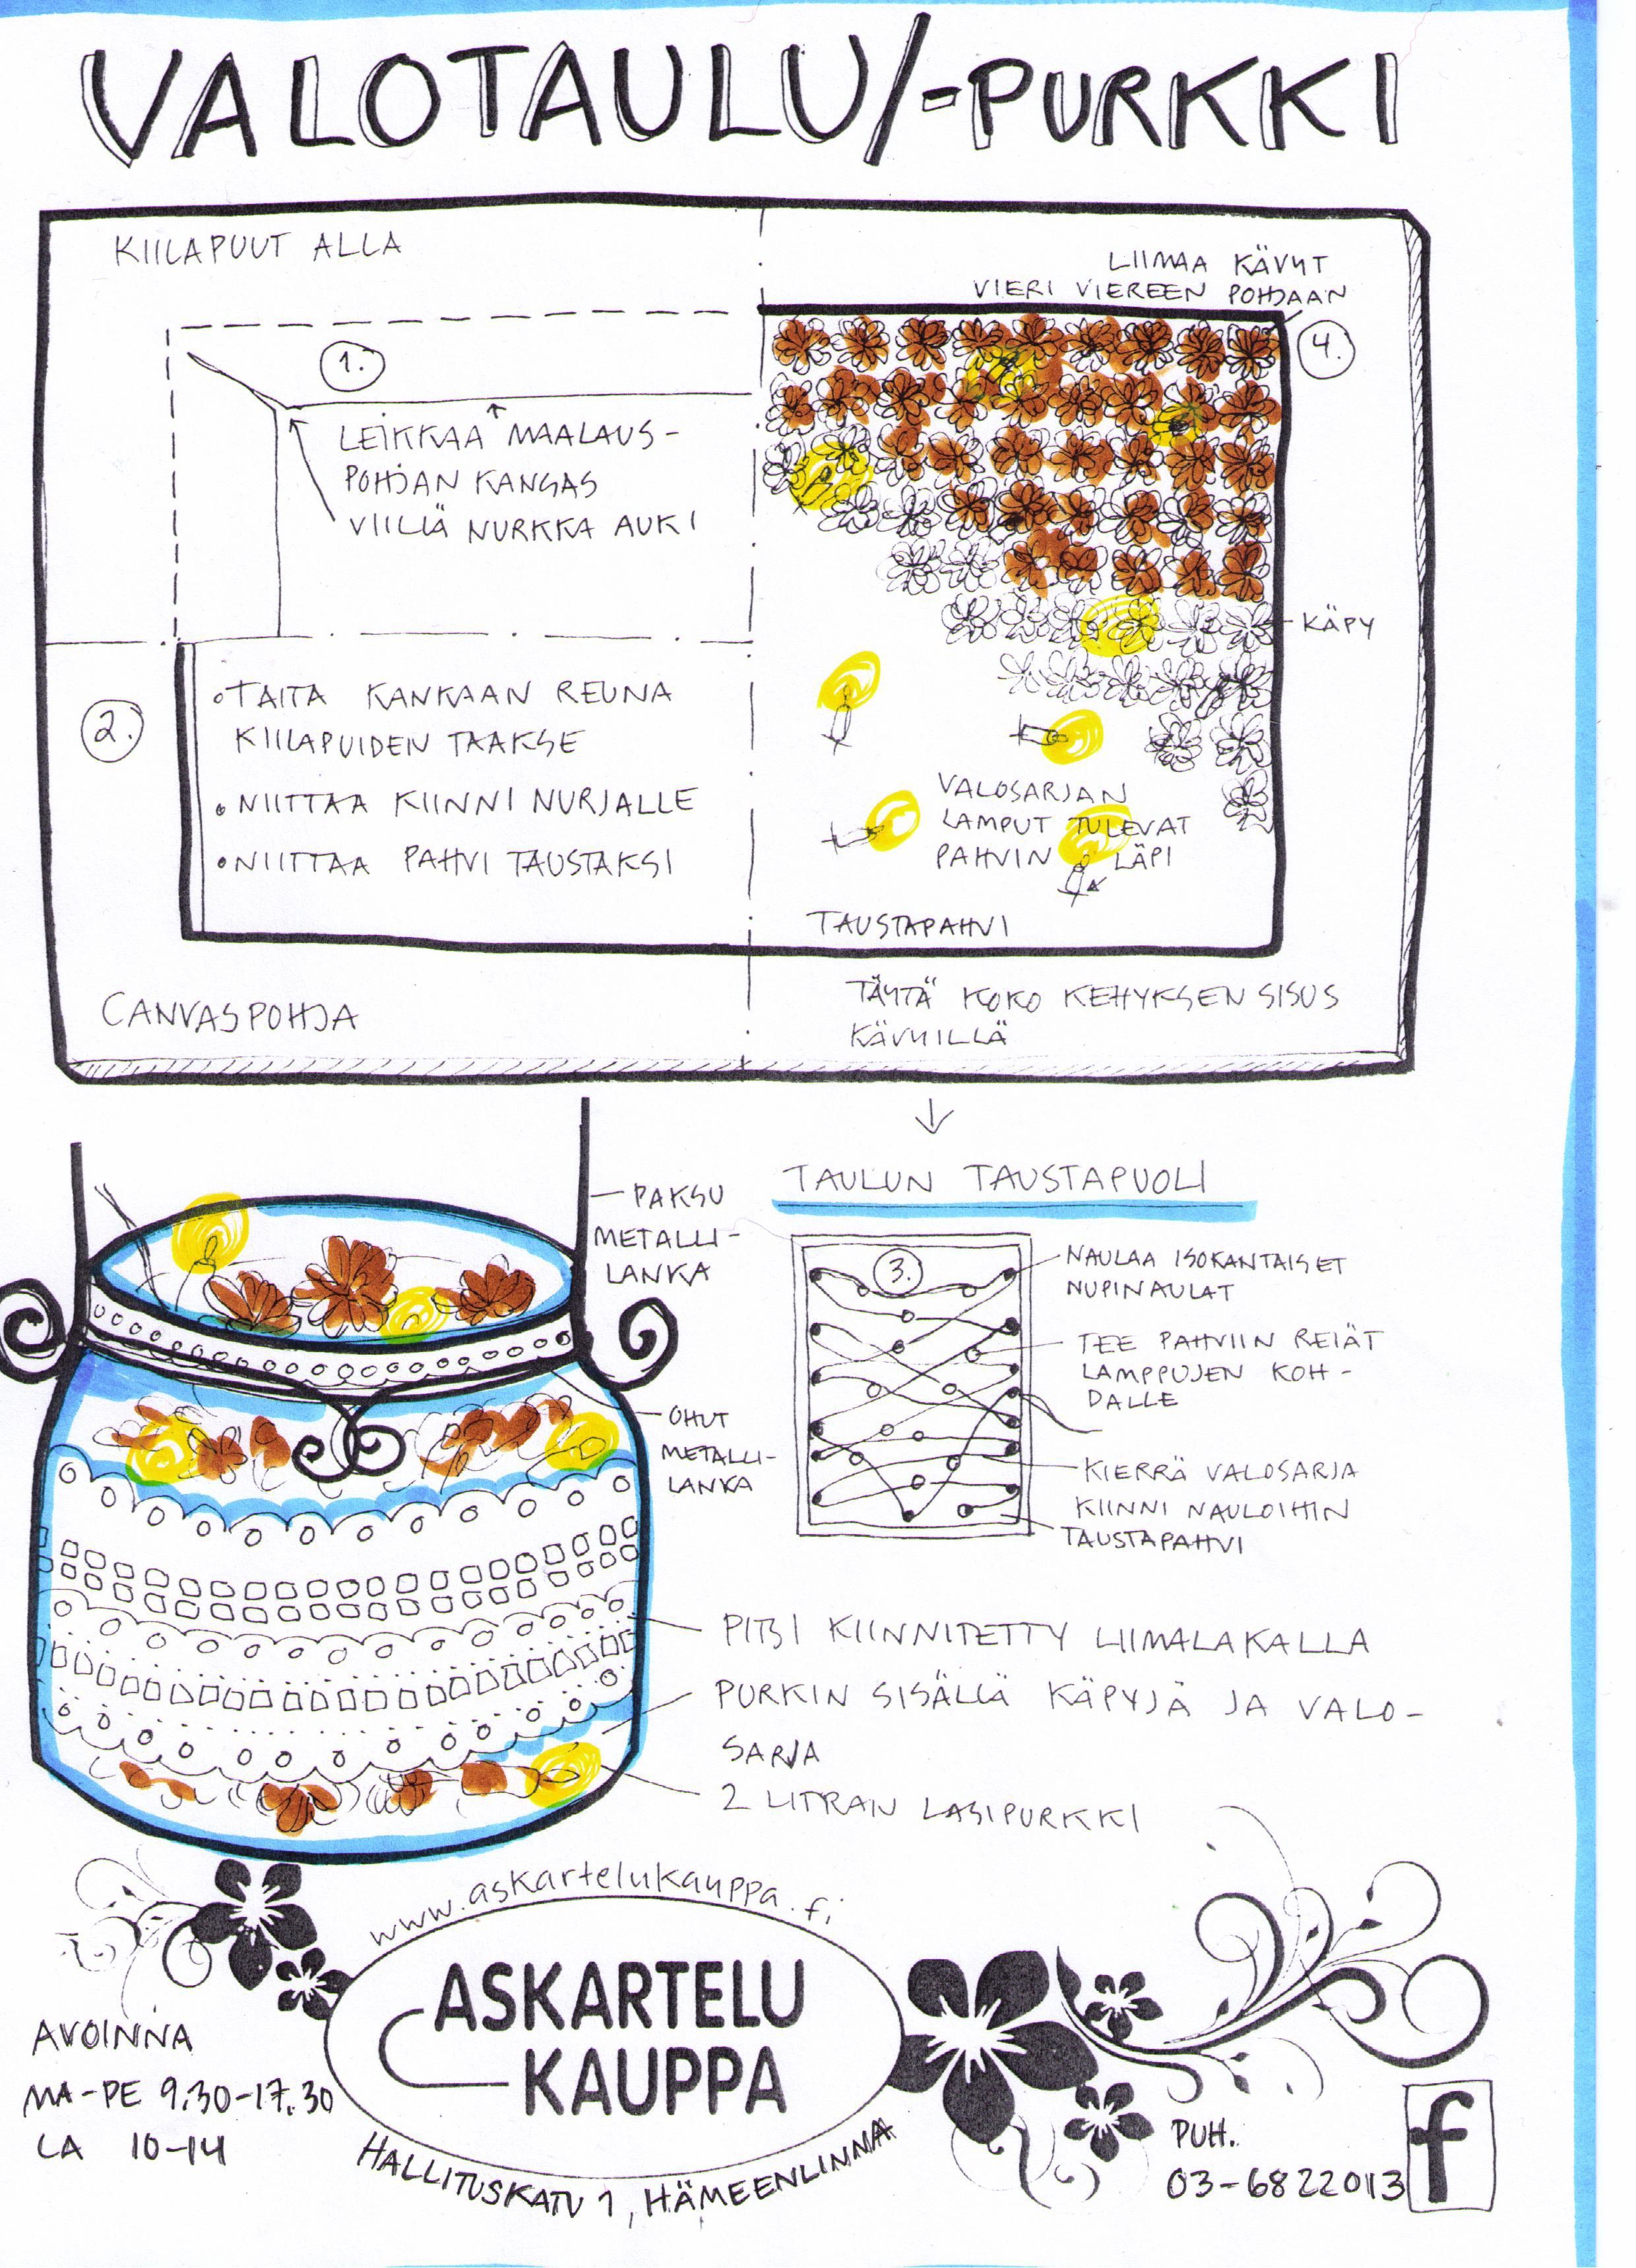 VALOTAULU/-PURKKI
KIILAPUUT ALLA
1.
LEIKKAA MAALAUS-
POHJAN KANGAS
VIILLÄ NURKKA AUKI
2.
TAITA KANKAAN REUNA
KIILAPUIDEN TAAKSE
NIITTAA KIINNI NURJALLE
NIITTAA PAHVI TAUSTAKSI
CANVASPOHJA
LIIMAA KÄVYT
VIERI VIEREEN POHJAAN
4.
KÄPY
VALOSARJAN
LAMPUT TULEVAT
PAHVIN LÄPI
TAUSTAPAHVI
TÄYTÄ KOKO KEHYKSEN SISUS
KÄVYILLÄ
TAULUN TAUSTAPUOLI
3.
NAULAA ISOKANTAISET
NUPINAULAT
TEE PAHVIIN REIÄT
LAMPPUJEN KOH-
DALLE
KIERRÄ VALOSARJA
KIINNI NAULOIHIN
TAUSTAPAHVI
PAKSU
METALLI-
LANKA
OHUT
METALLI-
LANKA
PITSI KIINNITETTY LIIMALAKALLA
PURKIN SISÄLLÄ KÄPYJÄ JA VALO-
SARJA
2 LITRAN LASIPURKKI
www.askartelukauppa.fi
ASKARTELU
KAUPPA
HALLITUSKATU 1, HÄMEENLINNA
AVOINNA
MA-PE 9.30-17.30
LA 10-14
PUH.
03-6822013
f